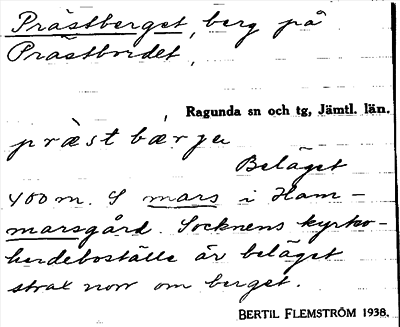 Prästberget, berg på
Prästbordet,
Ragunda sn och tg, Jämtl. län.
præ̀st bær ja
Beläget
400 m. S mars i Ham-
marsgård. Socknens kyrko-
herdeboställe är beläget
strax norr om berget.
BERTIL FLEMSTRÖM 1938.